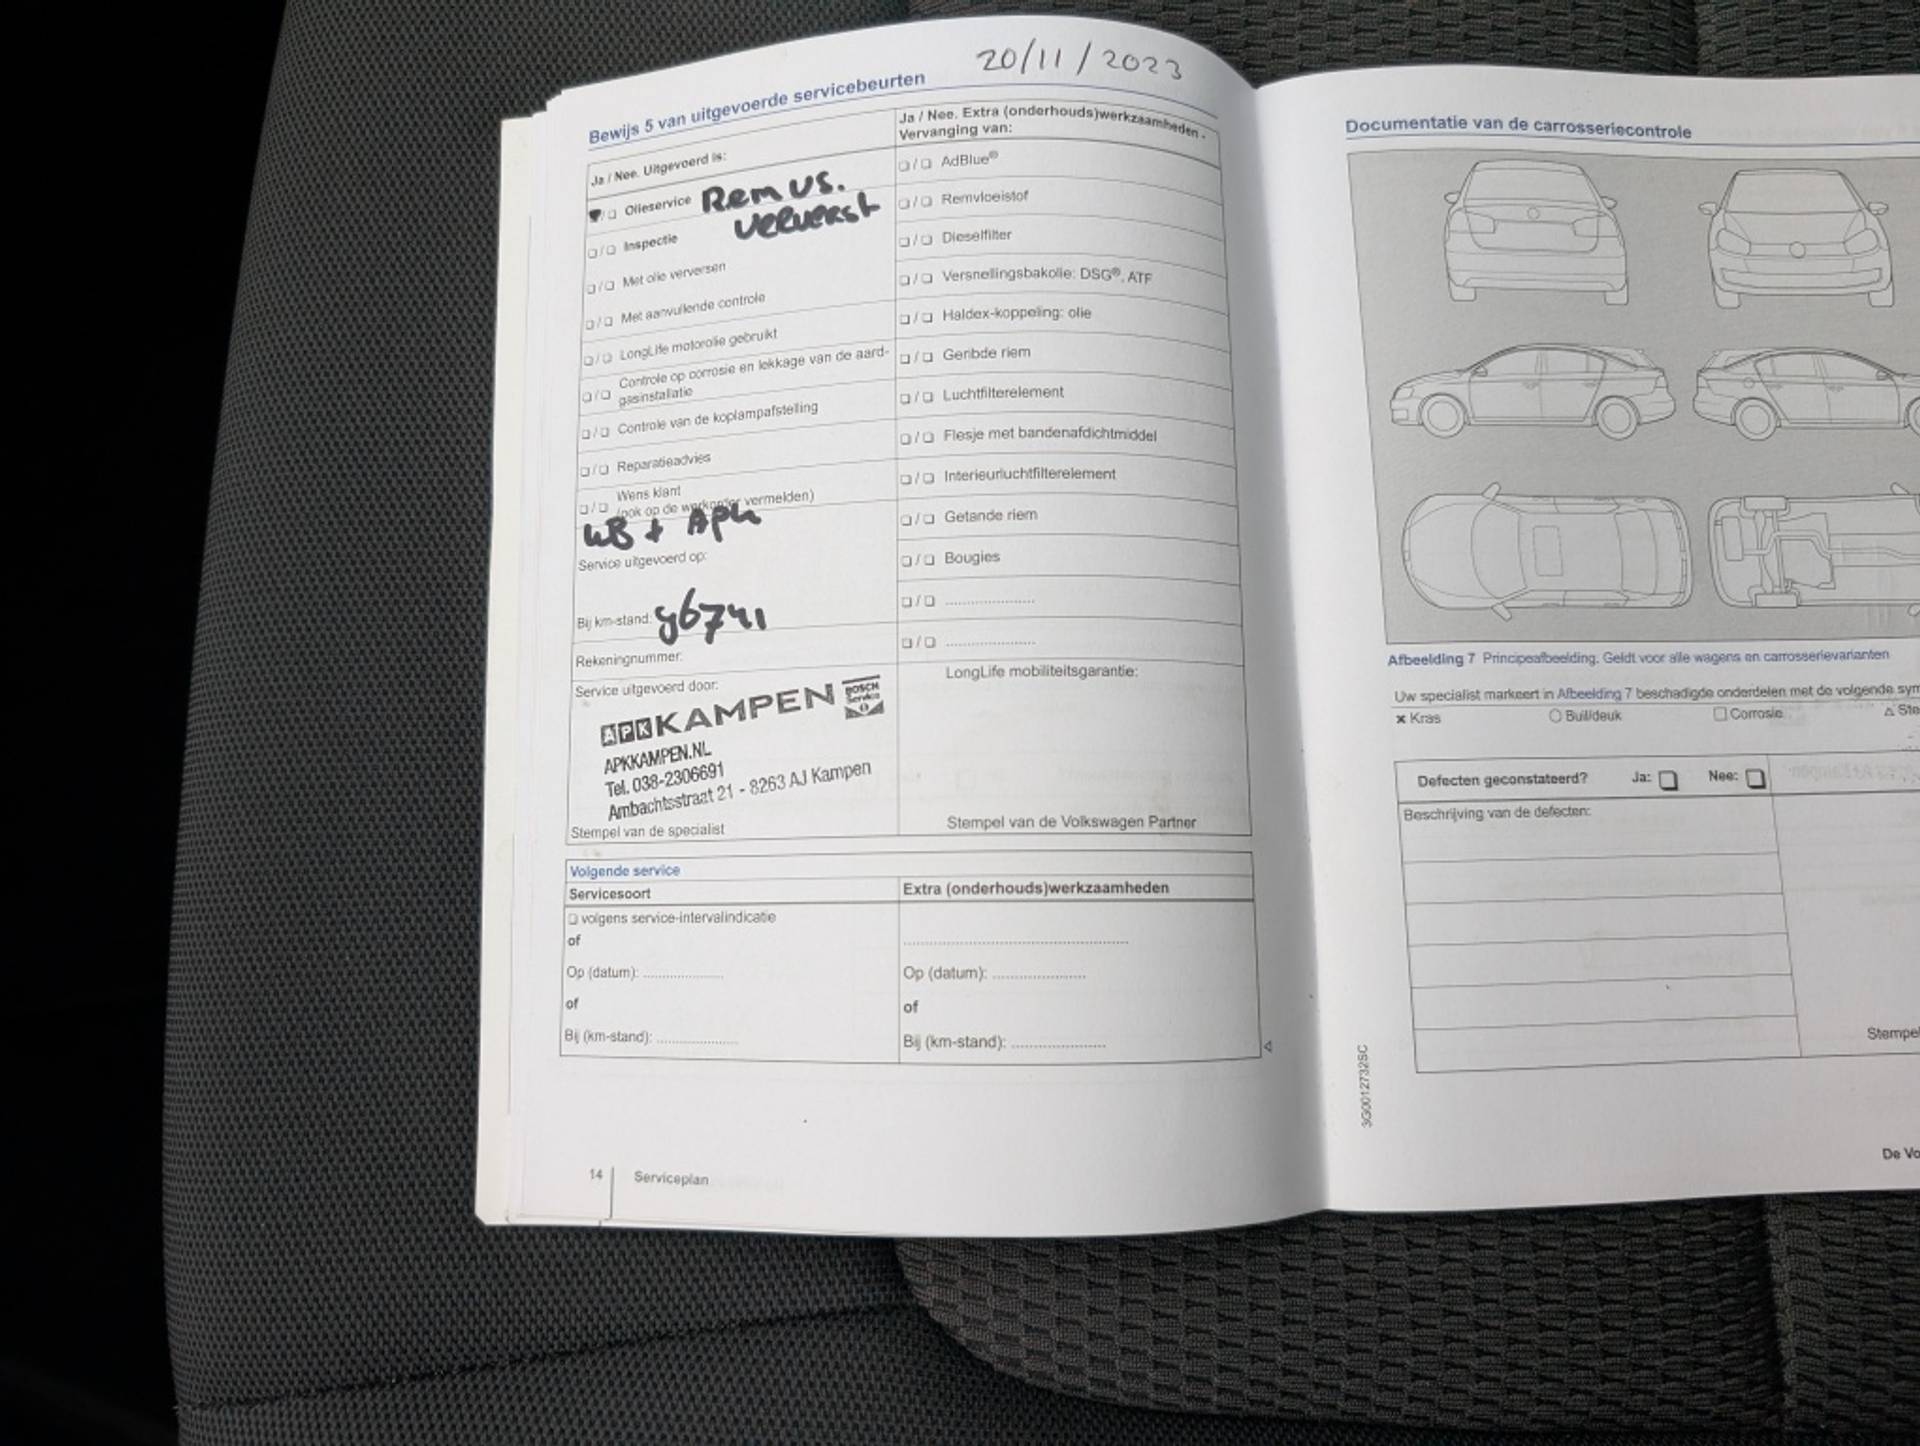 20/11/2023
Bewijs 5 van uitgevoerde servicebeurten
Ja / Nee. Uitgevoerd is:
Olieservice Rem vs.
ververst
Inspectie
Met olie verversen
Met aanvullende controle
LongLife motorolie gebruikt
Controle op corrosie en lekkage van de aard-
gasinstallatie
Controle van de koplampafstelling
Reparatieadvies
Wens klant
(ook op de werkorder vermelden)
+ APK
Service uitgevoerd op:
Bij km-stand:
Rekeningnummer:
Service uitgevoerd door:
APK KAMPEN BOSCH
Service
APKKAMPEN.NL
Tel. 038-2306691
Ambachtsstraat 21 - 8263 AJ Kampen
Stempel van de specialist
Ja / Nee. Extra (onderhouds)werkzaamheden -
Vervanging van:
AdBlue®
Remvloeistof
Dieselfilter
Versnellingsbakolie: DSG®, ATF
Haldex-koppeling: olie
Geribde riem
Luchtfilterelement
Flesje met bandenafdichtmiddel
Interieurluchtfilterelement
Getande riem
Bougies
LongLife mobiliteitsgarantie:
Stempel van de Volkswagen Partner
Volgende service
Servicesoort
volgens service-intervalindicatie
of
Op (datum):
of
Bij (km-stand):
Extra (onderhouds)werkzaamheden
Op (datum):
of
Bij (km-stand):
14 Serviceplan
Documentatie van de carrosseriecontrole
Afbeelding 7 Principeafbeelding: Geldt voor alle wagens en carrosserievarianten
Uw specialist markeert in Afbeelding 7 beschadigde onderdelen met de volgende sym
Kras Buil/deuk Corrosie Ste
Defecten geconstateerd? Ja: Nee:
Beschrijving van de defecten:
Stempel
3G0012732SC
De Vo